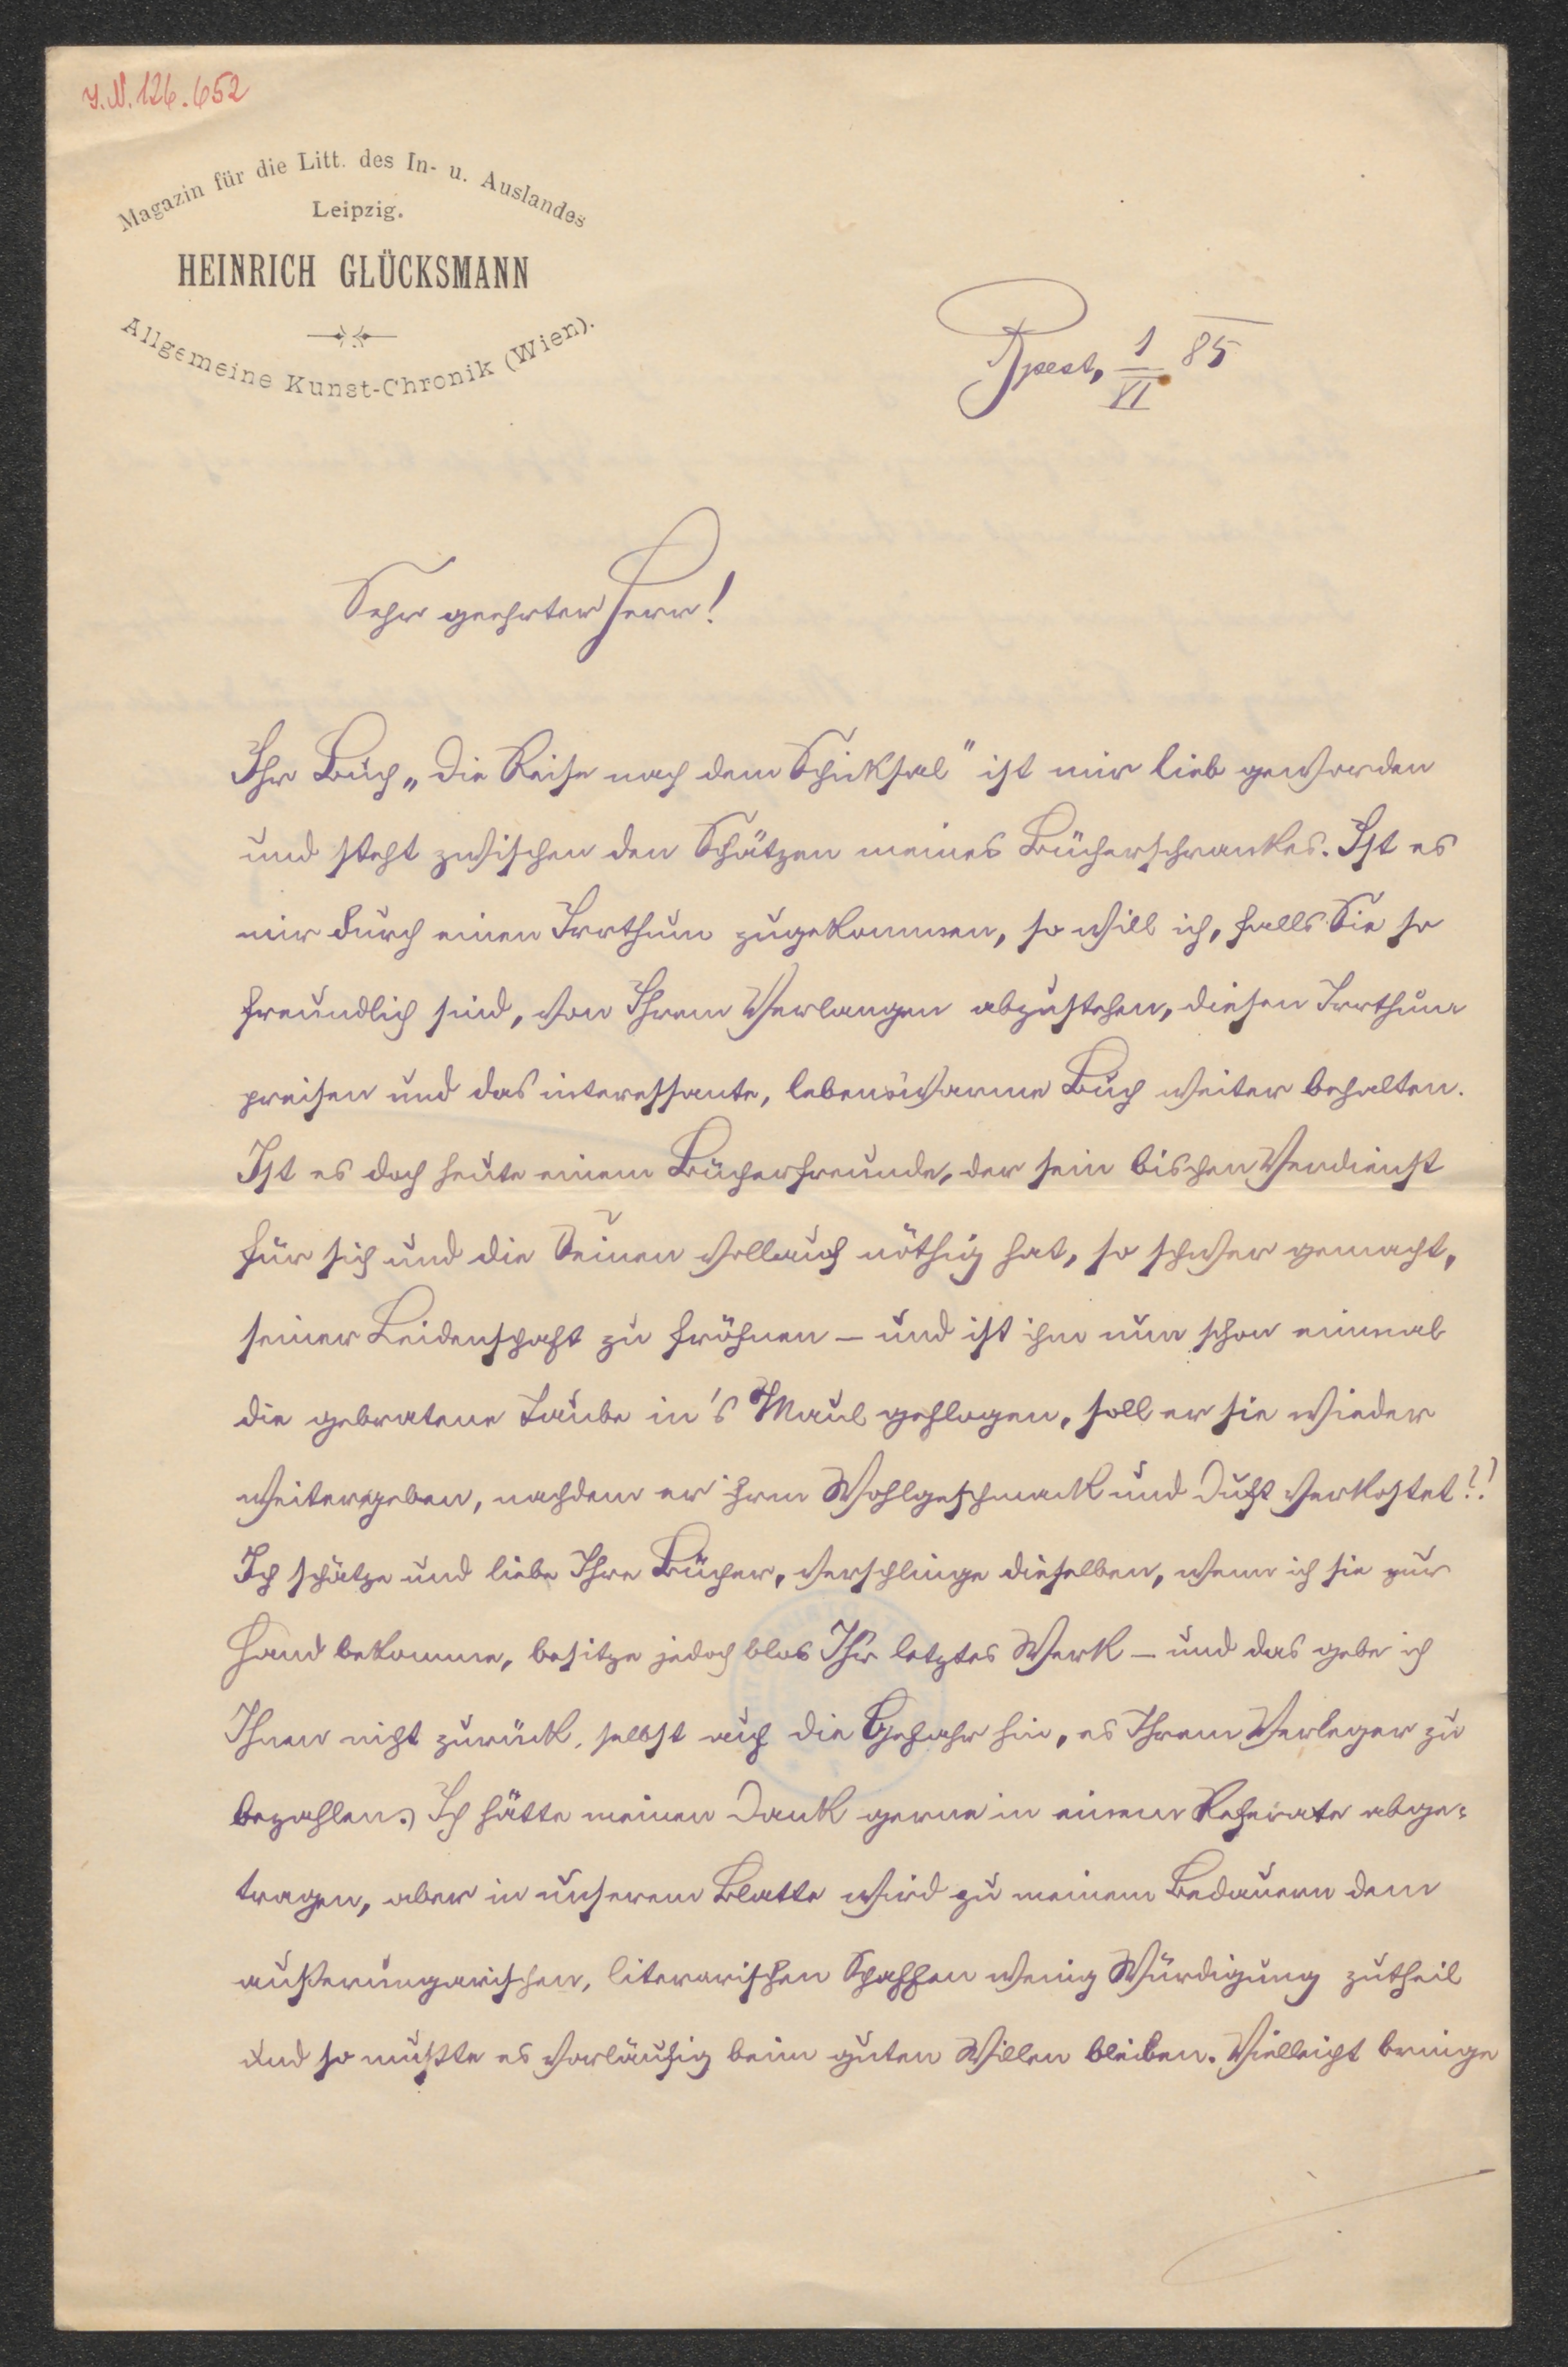 J.N. 126.652
Magazin für die Litt. des In- u. Auslandes
Leipzig.
HEINRICH GLÜCKSMANN
Allgemeine Kunst-Chronik (Wien).
Bpest, 1/VI 85
Sehr geehrter Herr!
Ihr Buch „Die Reise nach dem Schicksal" ist mir lieb geworden
und steht zwischen den Schätzen meines Bücherschrankes. Ist es
mir durch einen Irrthum zugekommen, so will ich, falls Sie so
freundlich sind, von Ihrem Verlangen abzustehen, diesen Irrthum
preisen und das interessante, lebenswarme Buch weiter behalten.
Ist es doch heute einem Bücherfreunde, der sein bischen Verdienst
für sich und die Seinen vollauf nöthig hat, so schwer gemacht,
seiner Leidenschaft zu fröhnen – und ist ihm nun schon einmal
die gebratene Taube in's Maul geflogen, soll er sie wieder
weitergeben, nachdem er ihren Wohlgeschmack und Duft verkostet?!
Ich schätze und liebe Ihre Bücher, verschlinge dieselben, wenn ich sie zur
Hand bekomme, besitze jedoch blos Ihr letztes Werk – und das gebe ich
Ihnen nicht zurück, selbst auf die Gefahr hin, es Ihrem Verleger zu
bezahlen. Ich hätte meinen Dank gerne in einem Referate abge-
tragen, aber in unserem Blatte wird zu meinem Bedauern dem
außerungarischen, literarischen Schaffen wenig Würdigung zutheil
und so mußte es vorläufig beim guten Willen bleiben. Vielleicht bringe